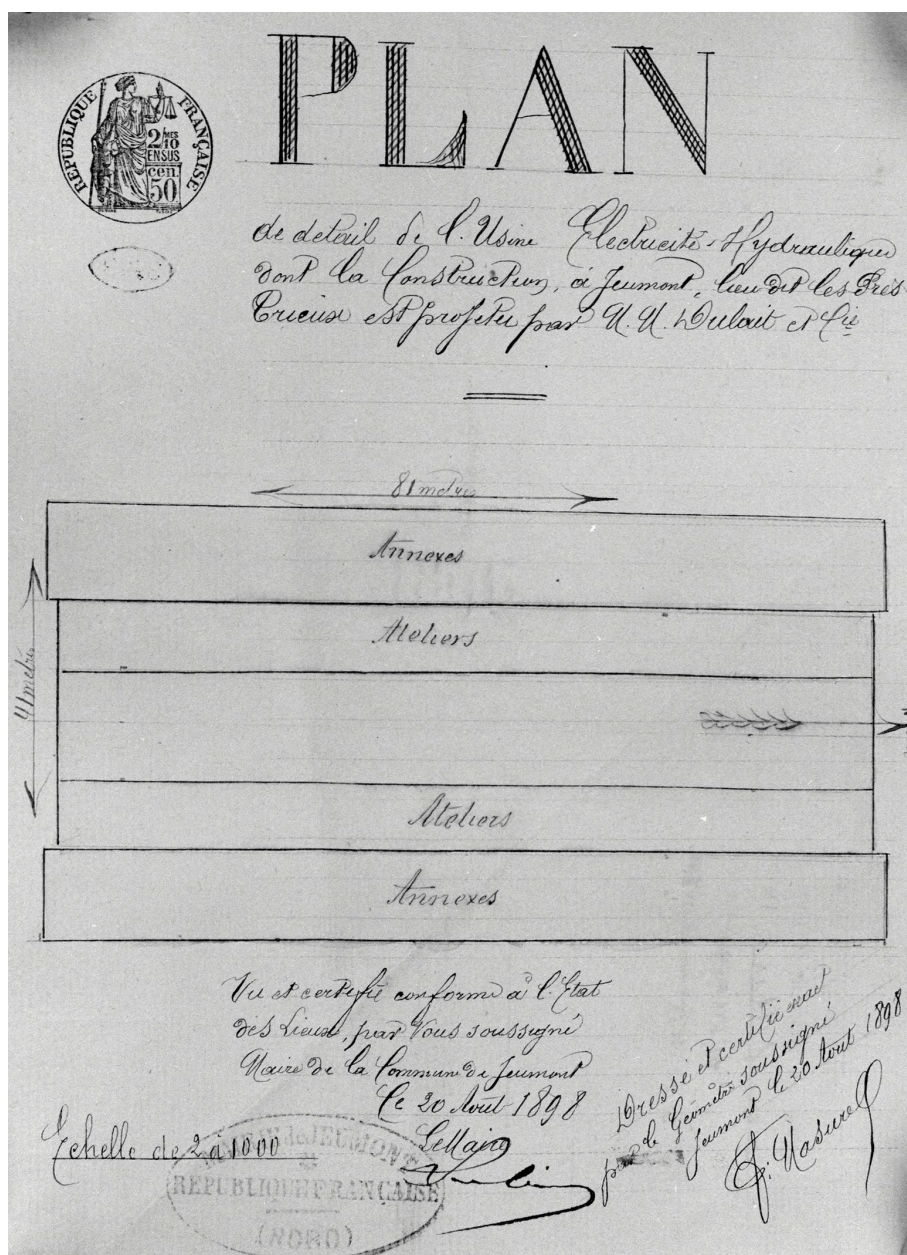 PLAN
RÉPUBLIQUE FRANÇAISE
2/10 MES
EN SUS
cen.
50
de detail de l'Usine Électricité-Hydraulique
dont la Construction, à Jeumont, lieu dit les Prés
est projetée par M.M. Dulait et Cie
81 mètres
Annexes
Ateliers
41 mètres
Ateliers
Annexes
Vu et certifié conforme à l'Etat
des Lieux, par Nous soussigné
Maire de la Commune de Jeumont
Le 20 Août 1898
Le Maire
Dressé et certifié exact
par le Géomètre soussigné
Jeumont le 20 Août 1898
Echelle de 2 à 1000
MAIRIE de JEUMONT
RÉPUBLIQUE FRANÇAISE
(NORD)